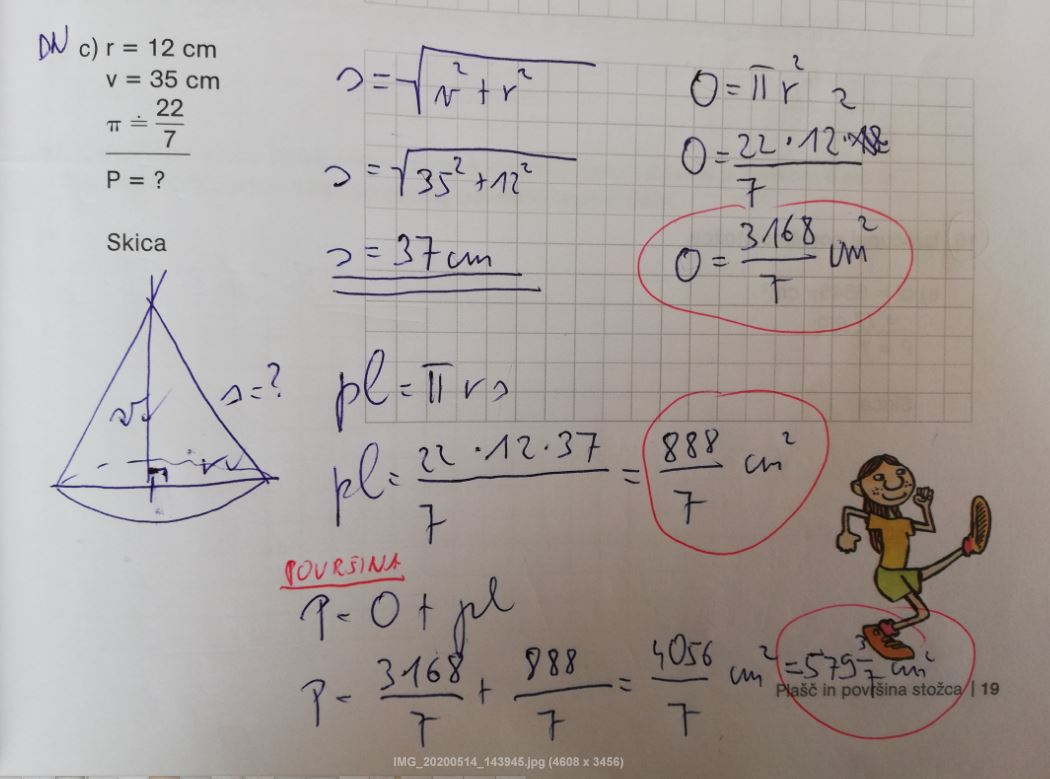 DN c) r = 12 cm
v = 35 cm
π ≐ 22/7
P = ?
Skica
v
r
s = ?
s = √(v² + r²)
s = √(35² + 12²)
s = 37 cm
O = π r²
O = 22 · 12² / 7
O = 3168/7 cm²
pl = π r s
pl = 22 · 12 · 37 / 7 = 888/7 cm²
POVRŠINA
P = O + pl
P = 3168/7 + 888/7 = 4056/7 cm² = 579 3/7 cm²
Plašč in površina stožca | 19
IMG_20200514_143945.jpg (4608 x 3456)